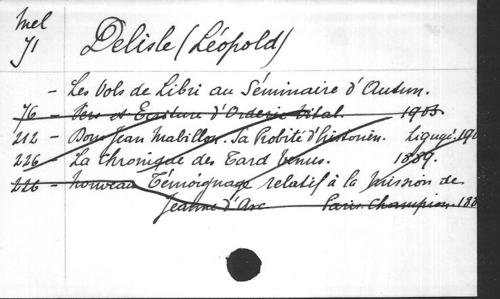 Mel
71 Delisle (Léopold)
- Les Vols de Libri au Séminaire d'Autun.
76 - Vers et Ecriture d'Orderic Vital. 1903
212 - Dom Jean Mabillon. Sa Probité d'historien. Ligugé. 190
226 - La Chronique des Tard Venus. 1889.
226 - Nouveau Témoignage relatif à la Mission de
Jeanne d'Arc Paris. Champion. 188